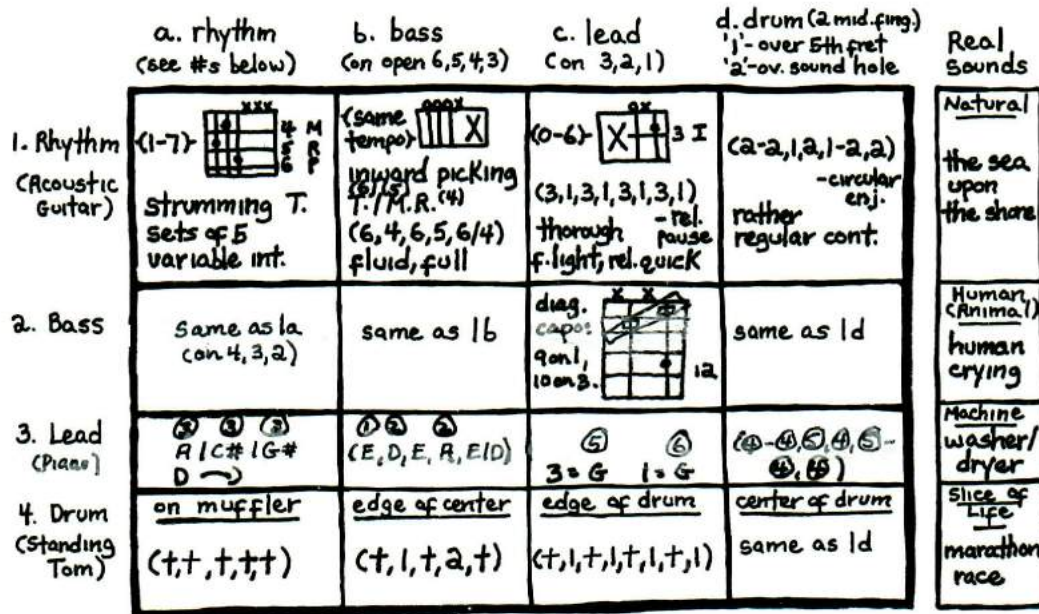 a. rhythm
(see #s below)
b. bass
(on open 6,5,4,3)
c. lead
(on 3,2,1)
d. drum (2 mid. fing.)
'1'- over 5th fret
'2'-ov. sound hole
Real
Sounds
1. Rhythm
(Acoustic
Guitar)
(1-7)
xxx
4 M
5 R
6 P
strumming T.
sets of 5
variable int.
(same
tempo)
ooox
X
inward picking
(6) (5)
T. / M. R. (4)
(6,4,6,5,6/4)
fluid, full
(0-6)
ox
X
3 I
(3,1,3,1,3,1,3,1)
thorough - rel.
pause
f. light, rel. quick
(2-2,1,2,1-2,2)
-circular
enj.
rather
regular cont.
Natural
the sea
upon
the shore
2. Bass
Same as 1a
(on 4,3,2)
same as 1b
diag.
capo:
9 on 1,
10 on 3.
x x
12
same as 1d
Human
(Animal)
human
crying
3. Lead
(Piano)
A / C# / G#
D
① ② ②
(E, D, E, A, E/D)
⑤ ⑥
3 = G 1 = G
(④-④,⑤,④,⑤-
④,④)
Machine
washer/
dryer
4. Drum
(Standing
Tom)
on muffler
(t,t,t,t,t)
edge of center
(t,1,t,2,t)
edge of drum
(t,1,t,1,t,1,t,1)
center of drum
same as 1d
Slice of
Life
marathon
race